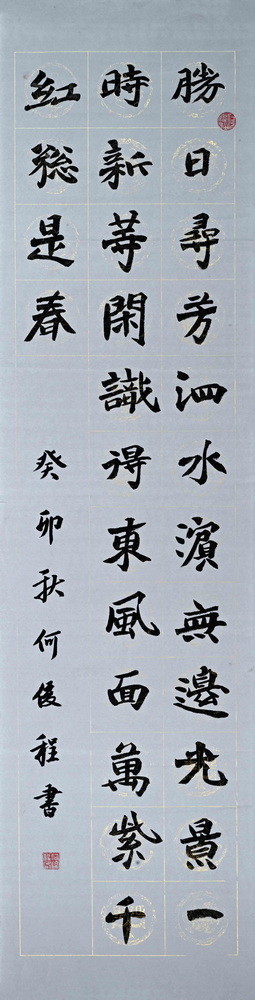 勝日尋芳泗水濱無邊光景一
時新等閑識得東風面萬紫千
紅總是春
癸卯秋何俊程書